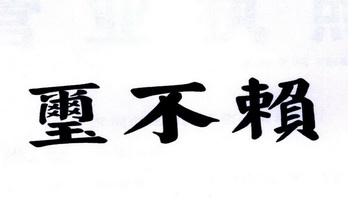 璽不賴